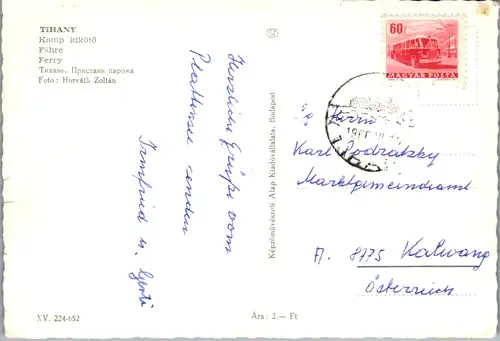 TIHANY
Komp kikötő
Fähre
Ferry
Тихань: Пристань парома
Foto: Horváth Zoltán
Herzliche Grüße vom
Plattensee senden
Semfried u. Gerti
XV. 224-652
Képzőművészeti Alap Kiadóvállalata, Budapest
Ára: 2.— Ft
60 f
MAGYAR POSTA
Herrn
Karl Podratzky
Marktgemeindeamt
A. 8775 Kalwang
Österreich